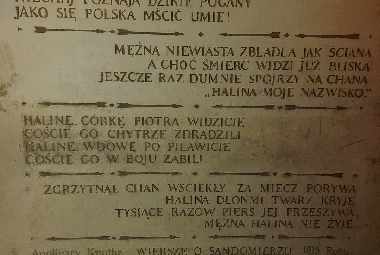 POZNAJĄ DZIKIE POGANY
JAKO SIĘ POLSKA MŚCIĆ UMIE!
MĘŻNA NIEWIASTA ZBLADŁA JAK ŚCIANA
A CHOĆ ŚMIERĆ WIDZI JUŻ BLISKA
JESZCZE RAZ DUMNIE SPOJRZY NA CHANA
„HALINA MOJE NAZWISKO."
HALINĘ, CÓRKĘ PIOTRA WIDZICIE
COŚCIE GO CHYTRZE ZDRADZILI
HALINĘ, WDOWĘ PO PILAWICIE
COŚCIE GO W BOJU ZABILI
ZGRZYTNĄŁ CHAN WŚCIEKŁY, ZA MIECZ PORYWA
HALINA DŁOŃMI TWARZ KRYJE
TYSIĄCE RAZÓW PIERŚ JEJ PRZESZYWA,
MĘŻNA HALINA NIE ŻYJE...
WIERSZE O SANDOMIERZU